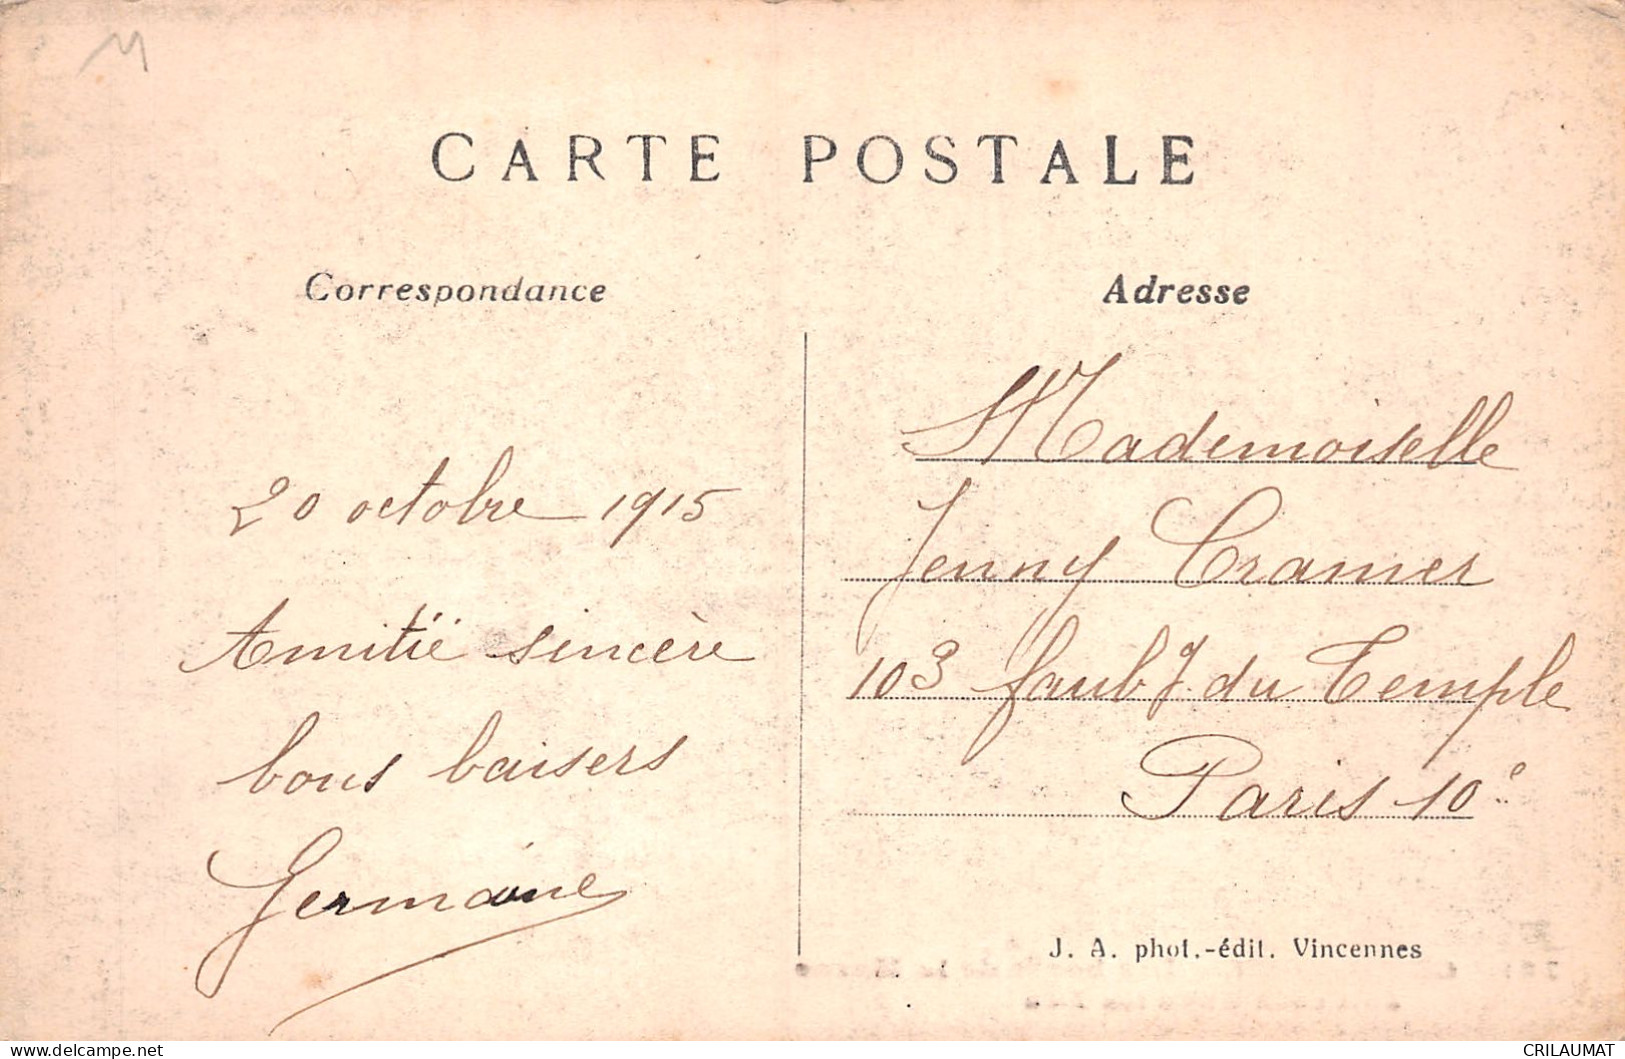 M
CARTE POSTALE
Correspondance
Adresse
20 octobre 1915
Amitié sincère
bons baisers
Germaine
Mademoiselle
Jenny Cramer
103 faubg du Temple
Paris 10e
J. A. phot.-édit. Vincennes
delcampe.net
CRILAUMAT